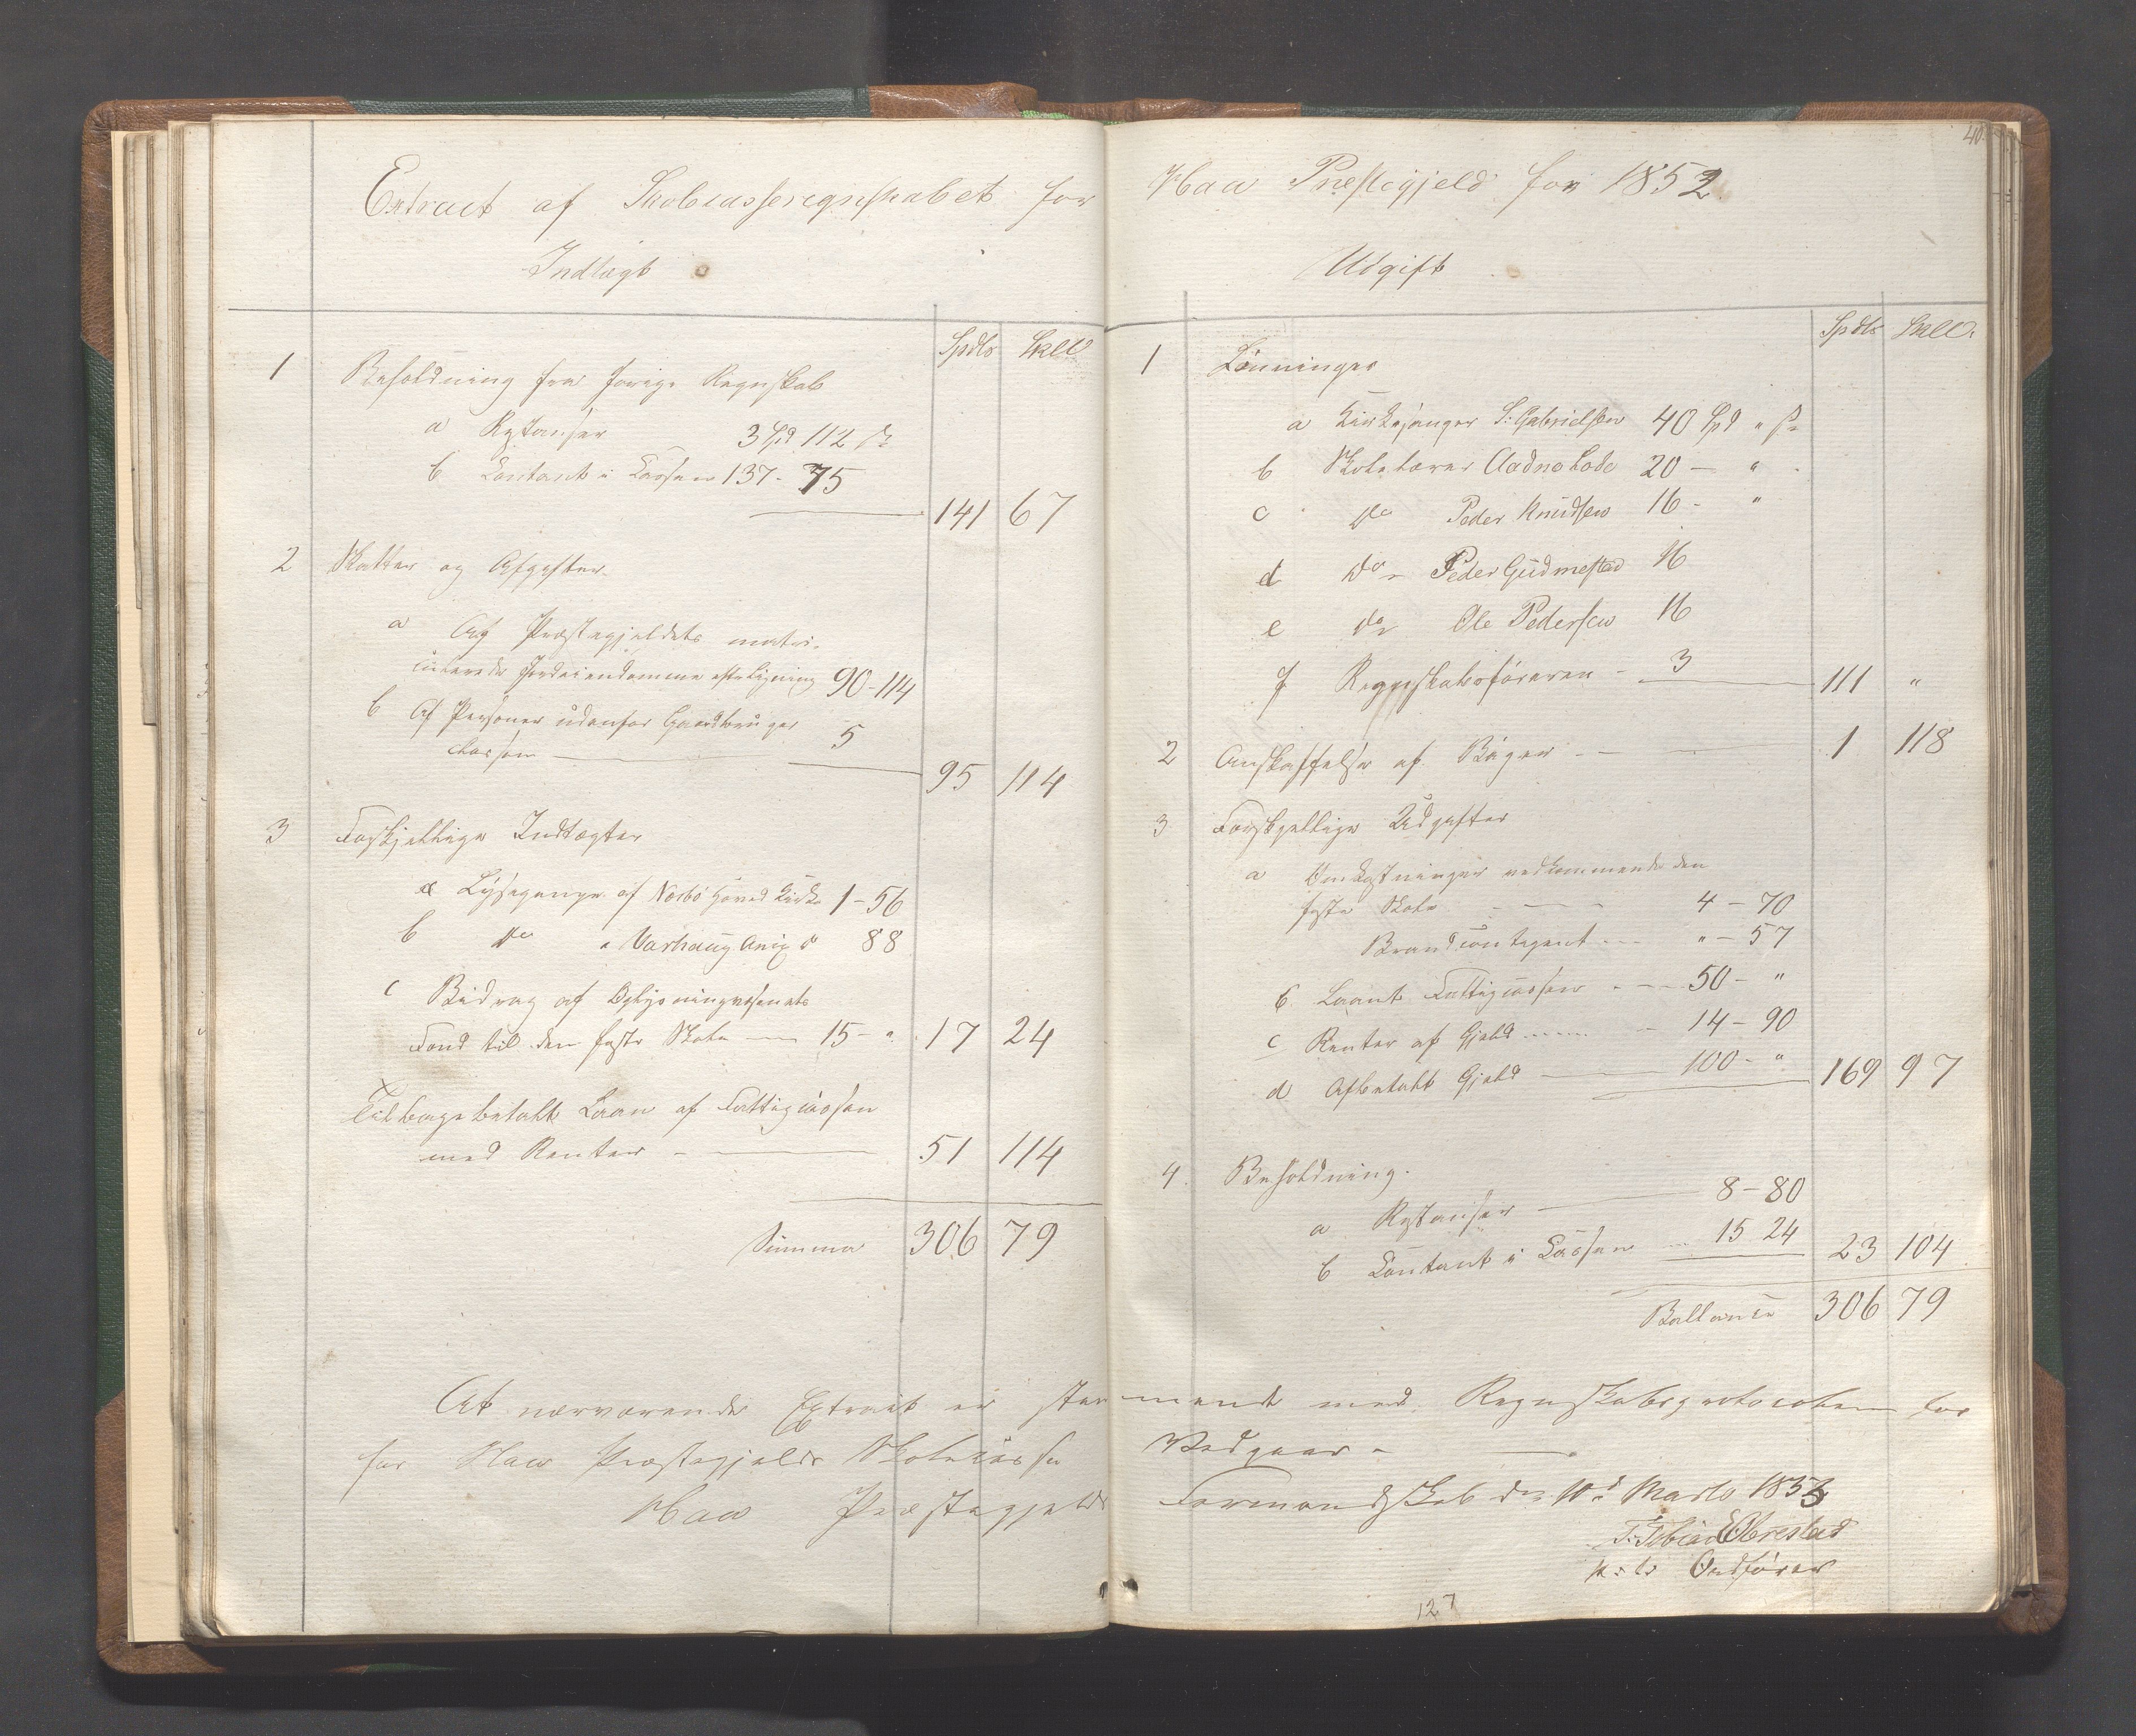 Extract af Skolecasseregnskabet for
Indtægt
Spdlr Skill
1 Beholdning fra forrige Regnskab
a Restanser 3 Spd 112 s
b Contant i Cassen 137 - 75
141 67
2 Skatter og Afgifter
a Af Præstegjeldets matri-
culerede Jordeiendomme efter Ligning 90 - 114
b Af Personer udenfor Gaardbruger
classen 5
95 114
3 Forskjellige Indtægter
a Lysepenge af Nærbø Hoved Kirke 1 - 56
b do " Varhaug Anex do 88
c Bidrag af Oplysningvæsenets
Fond til den faste Skole 15 - " 17 24
Tilbagebetalt Laan af Fattigcassen
med Renter - 51 114
Summa 306 79
At nærværende Extract er stem
for Haa Præstegjelds Skolecasse
Haa Præstegjelds
40
Haa Prestegjeld for 1852
Udgift
Spdlr Skill:
1 Lønninger
a Kirkesanger S: Gabrielsen 40 Spd " s
b Skolelærer Aadne Lode 20 - "
c do Peder Knudsen 16 - "
d do - Peder Gudmestad 16
e do Ole Pedersen 16
f Regnskabsføreren - 3
111 "
2 Anskaffelse af Bøger - - 1 118
3 Forskjellige Udgifter
a Omkostninger vedkommende den
faste Skole 4 - 70
Brandcontingent " - 57
b. Laant Fattigcassen 50 - "
c Renter af Gjeld 14 - 90
d Afbetalt Gjeld 100 - "
169 97
4. Beholdning.
a Restanser 8 - 80
b Contant i Cassen 15 24
23 104
Ballance 306 79
mende med Regnskabsprotocollen for
Vedgaar -
Formandskab den 10d Marts 1853
T. Tobias Obrestad
Ordfører
127